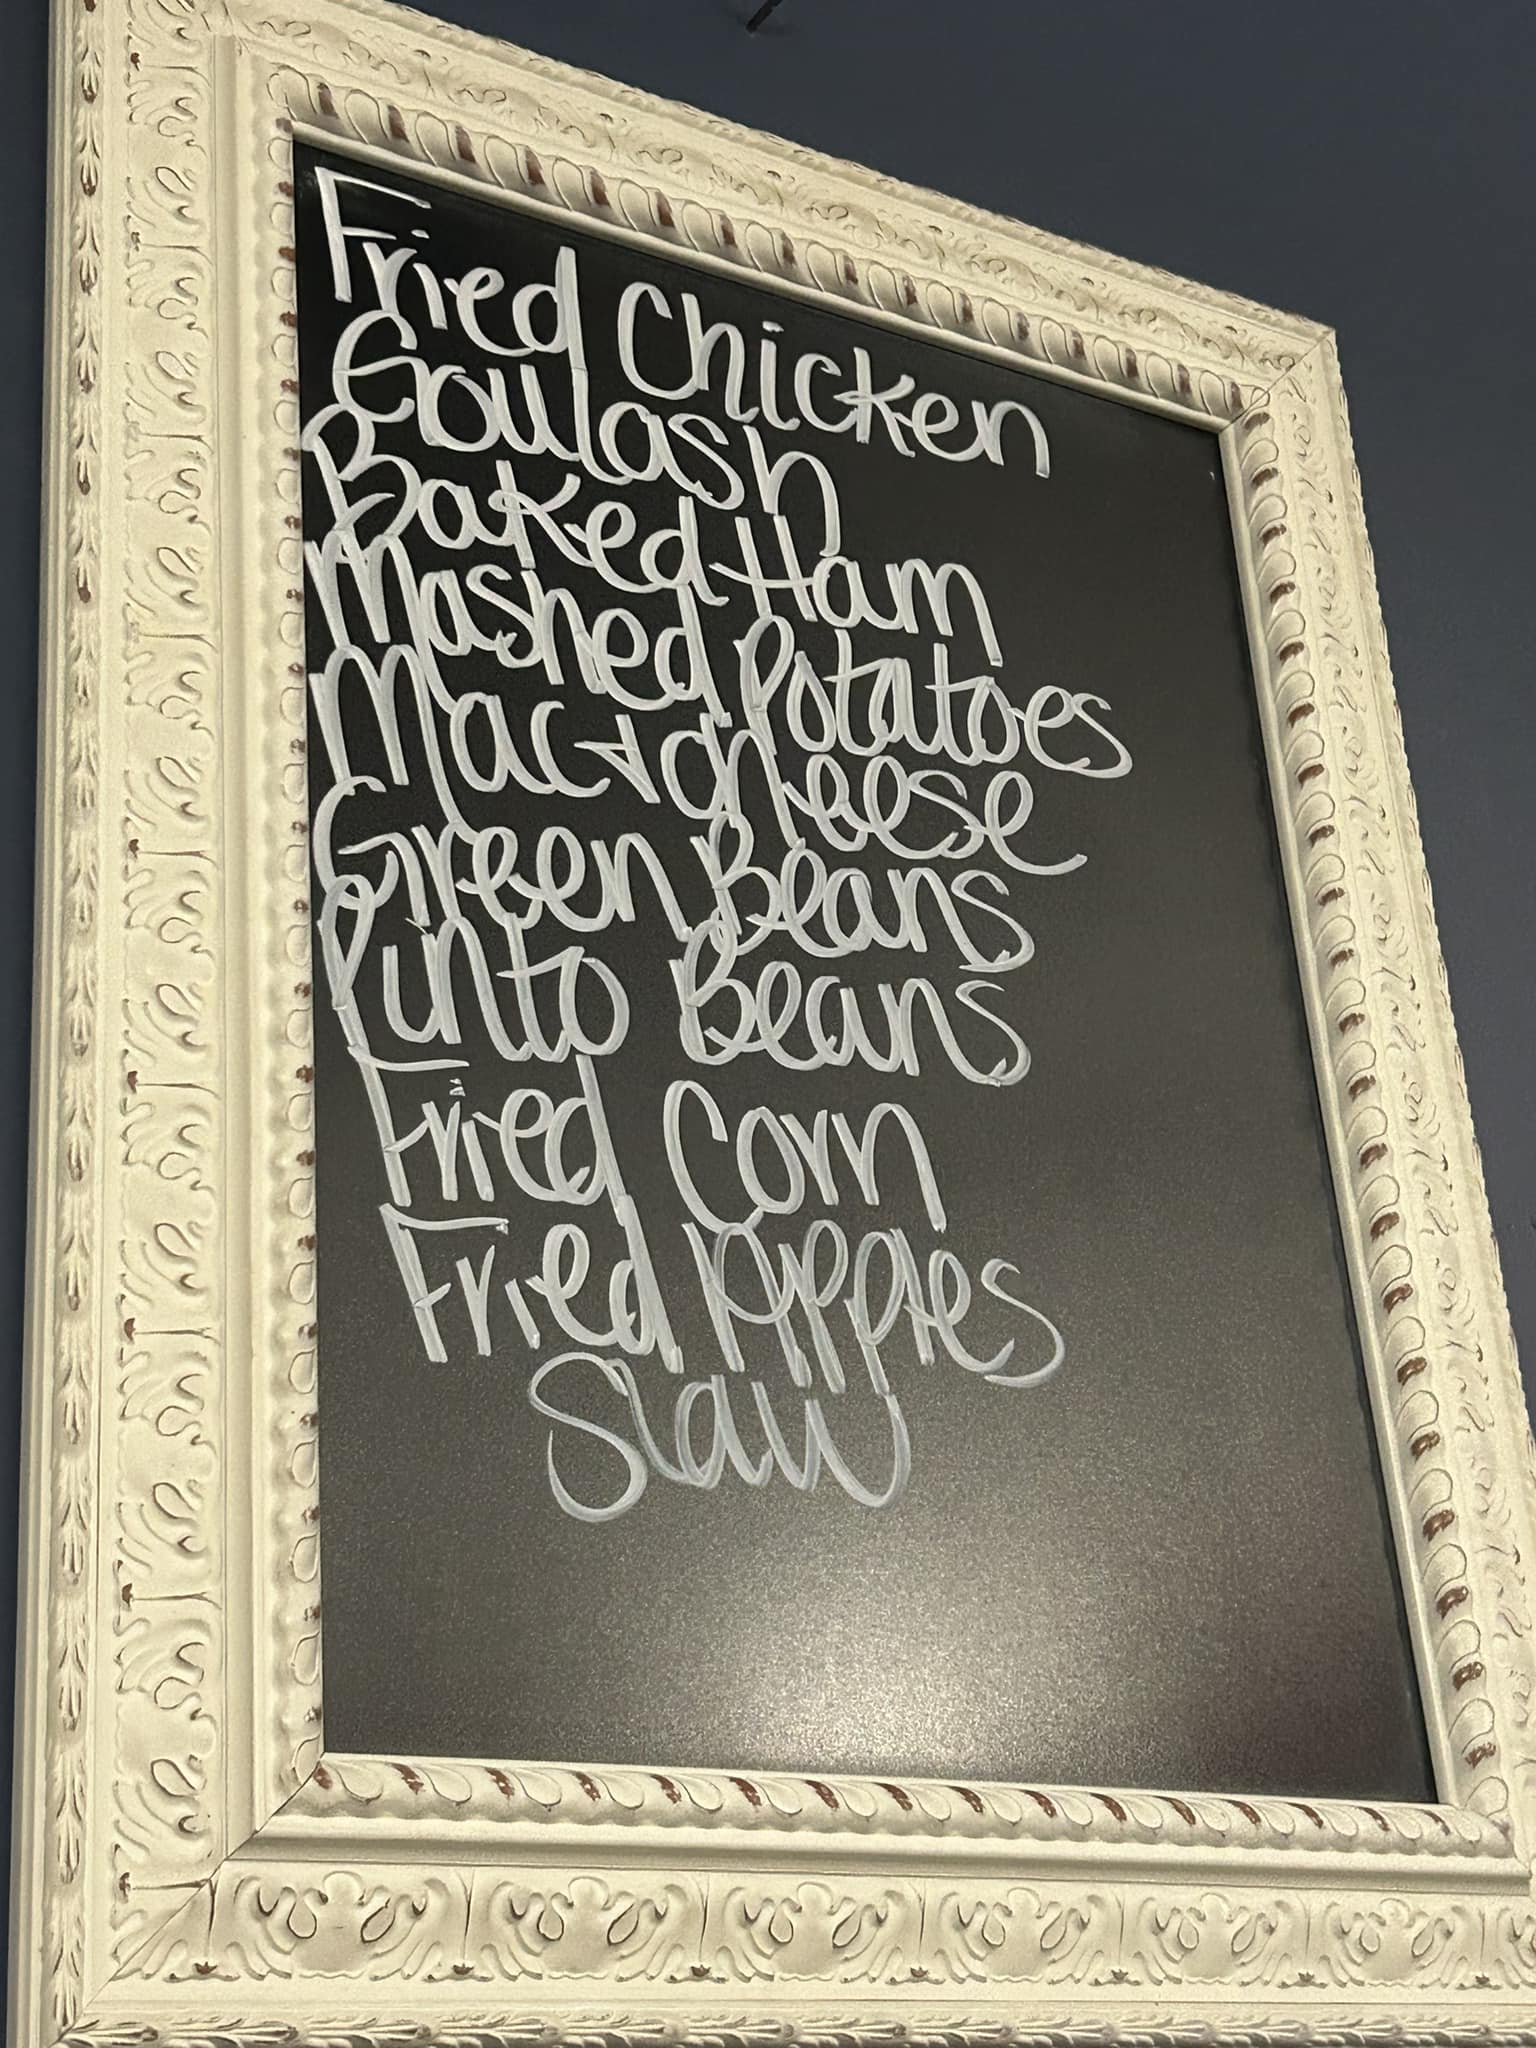 Fried Chicken
Goulash
Baked Ham
Mashed Potatoes
Mac + Cheese
Green Beans
Pinto Beans
Fried Corn
Fried Apples
Slaw